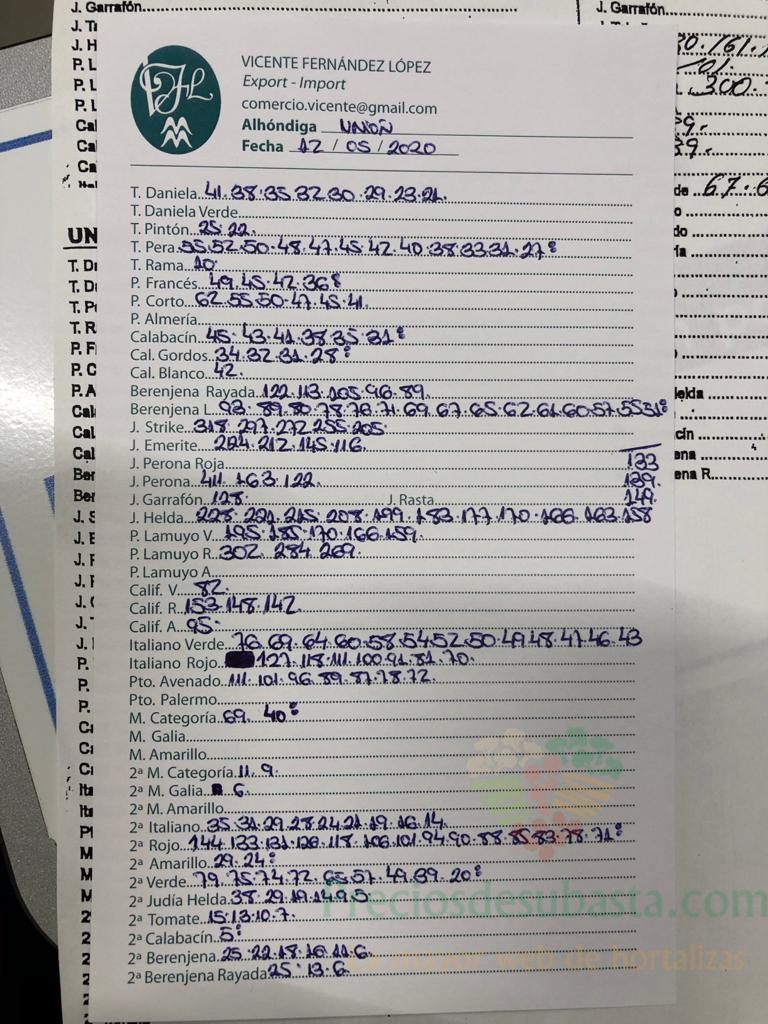 J. Garrafón
J. Garrafón
VICENTE FERNÁNDEZ LÓPEZ
Export - Import
comercio.vicente@gmail.com
Alhóndiga UNION
Fecha 12 / 05 / 2020
T. Daniela 41.38.35.32.30.29.23.21.
T. Daniela Verde
T. Pintón 25.22.
T. Pera 55.52.50.48.47.45.42.40.38.33.31.27
T. Rama 10
P. Francés 49.45.42.36
P. Corto 62.55.50.47.45.41.
P. Almería
Calabacín 45.43.41.38.35.31
Cal. Gordos 34.32.31.28
Cal. Blanco 42.
Berenjena Rayada 122.113.105.96.89.
Berenjena L. 93.89.80.78.76.71.69.67.65.62.61.60.57.55.51
J. Strike 318.297.272.255.205
J. Emerite 224.212.145.116.
J. Perona Roja
J. Perona 411.163.122.
133
139.
149.
J. Garrafón 128. J. Rasta
J. Helda 228.221.215.208.199.183.177.170.166.163.158
P. Lamuyo V. 195.185.170.166.159.
P. Lamuyo R. 302. 284.269.
P. Lamuyo A.
Calif. V. 82.
Calif. R. 153.148.142
Calif. A. 95.
Italiano Verde 76.69.64.60.58.54.52.50.49.48.47.46.43
Italiano Rojo 127.118.111.100.91.81.70.
Pto. Avenado 111.101.96.89.87.78.72.
Pto. Palermo
M. Categoría 69. 40
M. Galia
M. Amarillo
2ª M. Categoría 11.9.
2ª M. Galia 6.
2ª M. Amarillo
2ª Italiano 35.31.29.28.24.21.19.16.14.
2ª Rojo 144.133.131.126.118.106.101.94.90.88.85.83.78.71
2ª Amarillo 29.24
2ª Verde 79.75.74.72.65.57.49.39.20
2ª Judía Helda 38.29.19.14.9.5
2ª Tomate 15.13.10.7.
2ª Calabacín 5
2ª Berenjena 25.22.18.16.11.6.
2ª Berenjena Rayada 25.13.6.
Preciosdesubasta.com
web de hortalizas